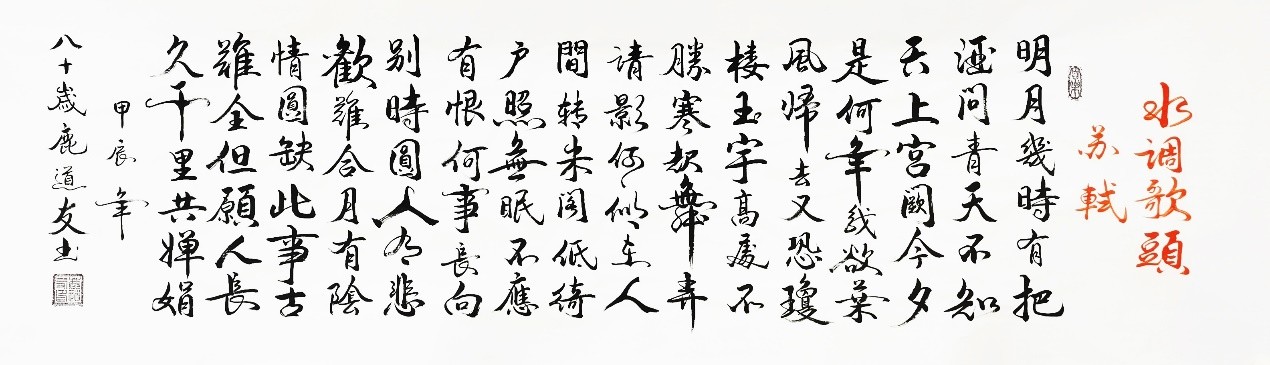 水调歌頭
苏軾
明月幾時有把
酒问青天不知
天上宮闕今夕
是何年我欲乘
風歸去又恐瓊
楼玉宇高處不
勝寒起舞弄
清影何似在人
間转朱阁低绮
户照無眠不應
有恨何事長向
别時圓人有悲
歡難合月有陰
情圓缺此事古
難全但願人長
久千里共嬋娟
甲辰年
八十歲鹿道友书